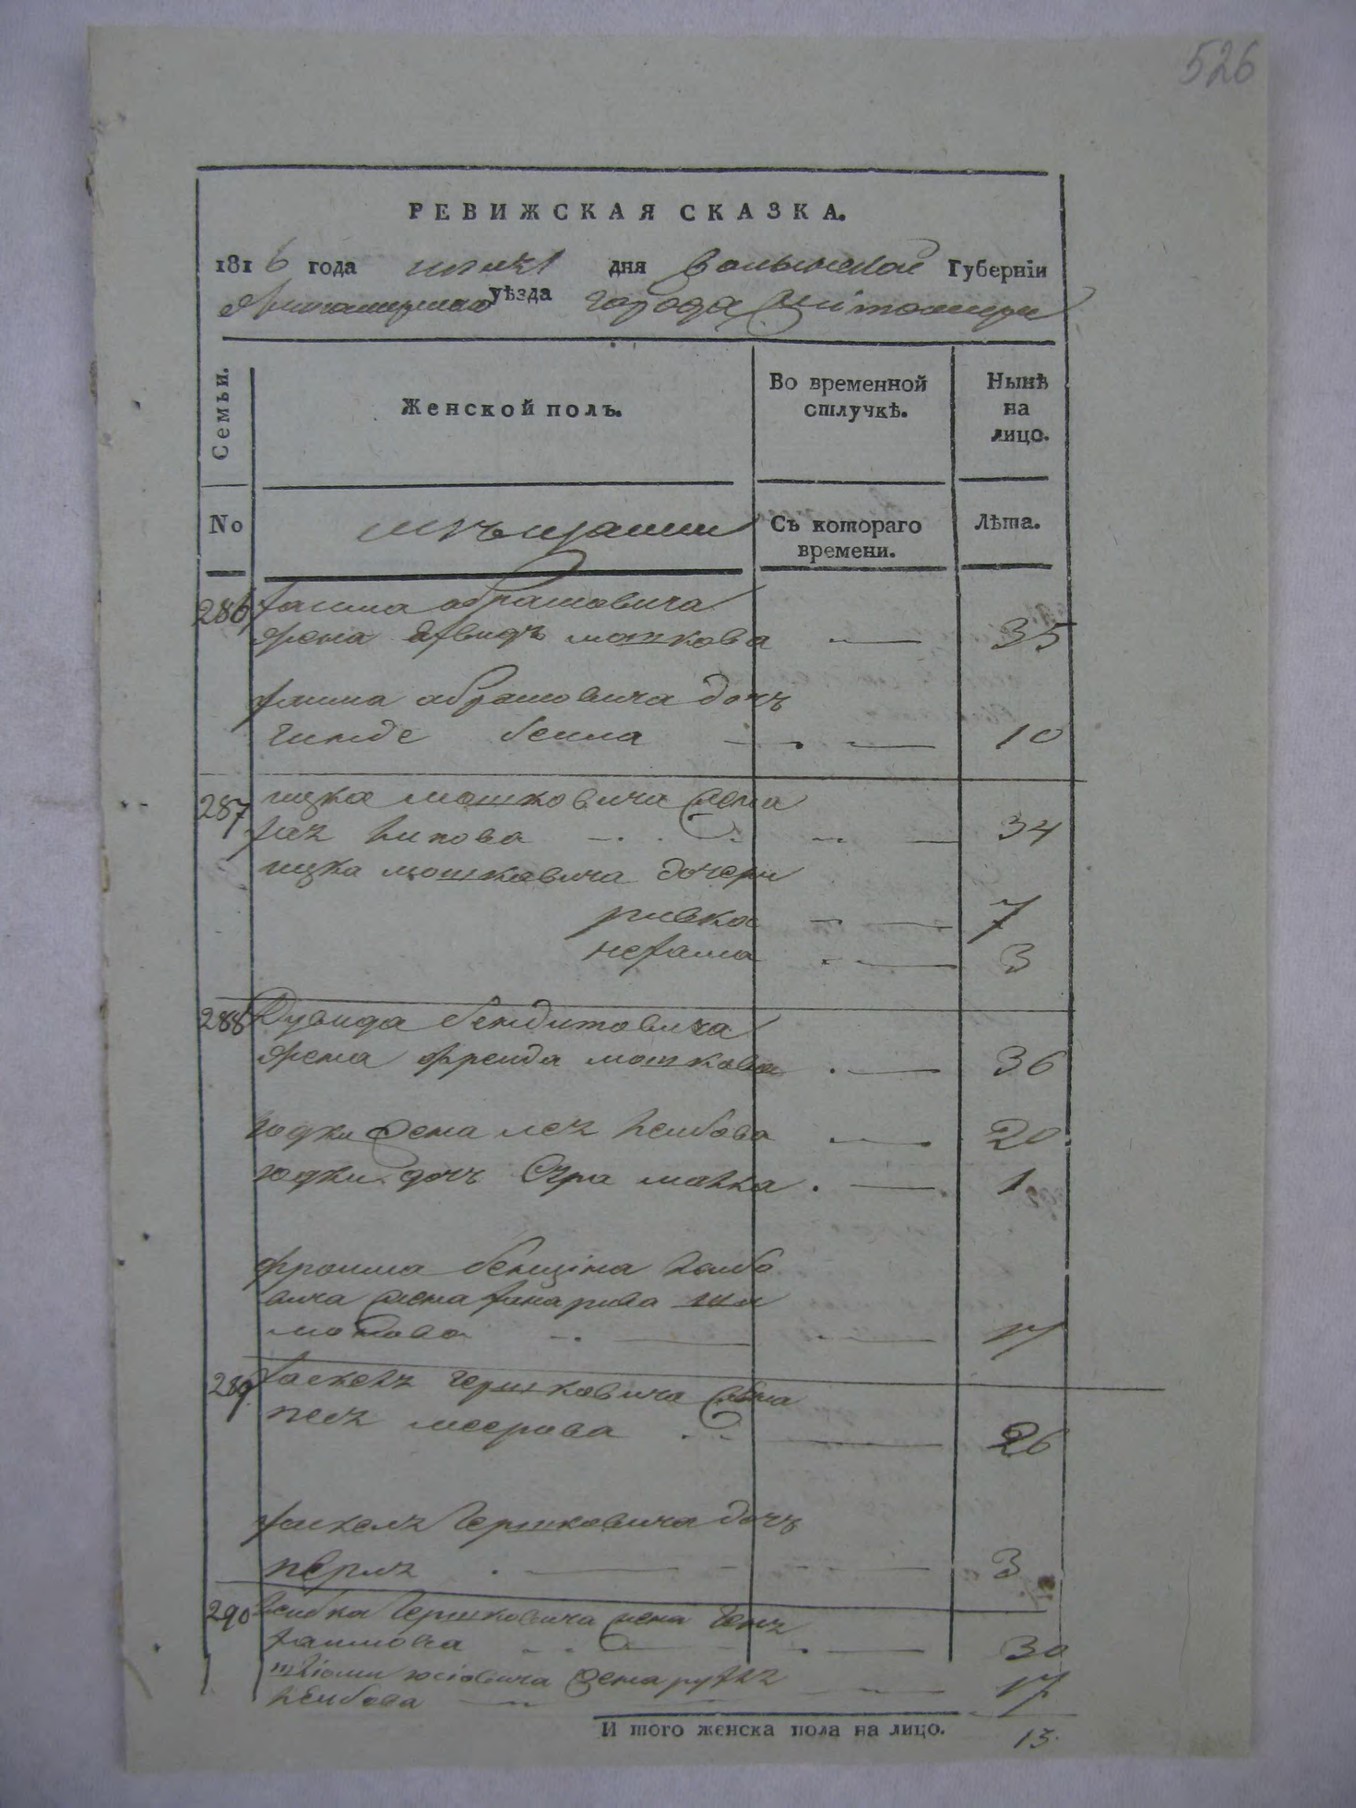 526
РЕВИЖСКАЯ СКАЗКА.
1816 года дня Волынской Губерніи
Житомирского уѣзда города Житомира
Семьи.
Женской полъ.
Во временной отлучкѣ.
Нынѣ на лицо.
No
мѣщани
Съ котораго времени.
Лѣта.
286 хаима абрамовича
жена мошкова 35
хаима абрамовича дочь
гинде беила 10
287 ицка мошковича жена
34
ицка мошковича дочери
ривка 7
нехама 3
288 Дувида бендитовича
жена фреида мошкова 36
юдки жена лея леибова 20
юдки дочь малка 1
фроима
вича жена
17
289 хаскеля гершковича жена
песя меерова 26
хаскеля гершковича дочь
перля 3
290 леибка гершковича жена геня
хаимова 30
жена рухля
леибова 17
И того женска пола на лицо.
13